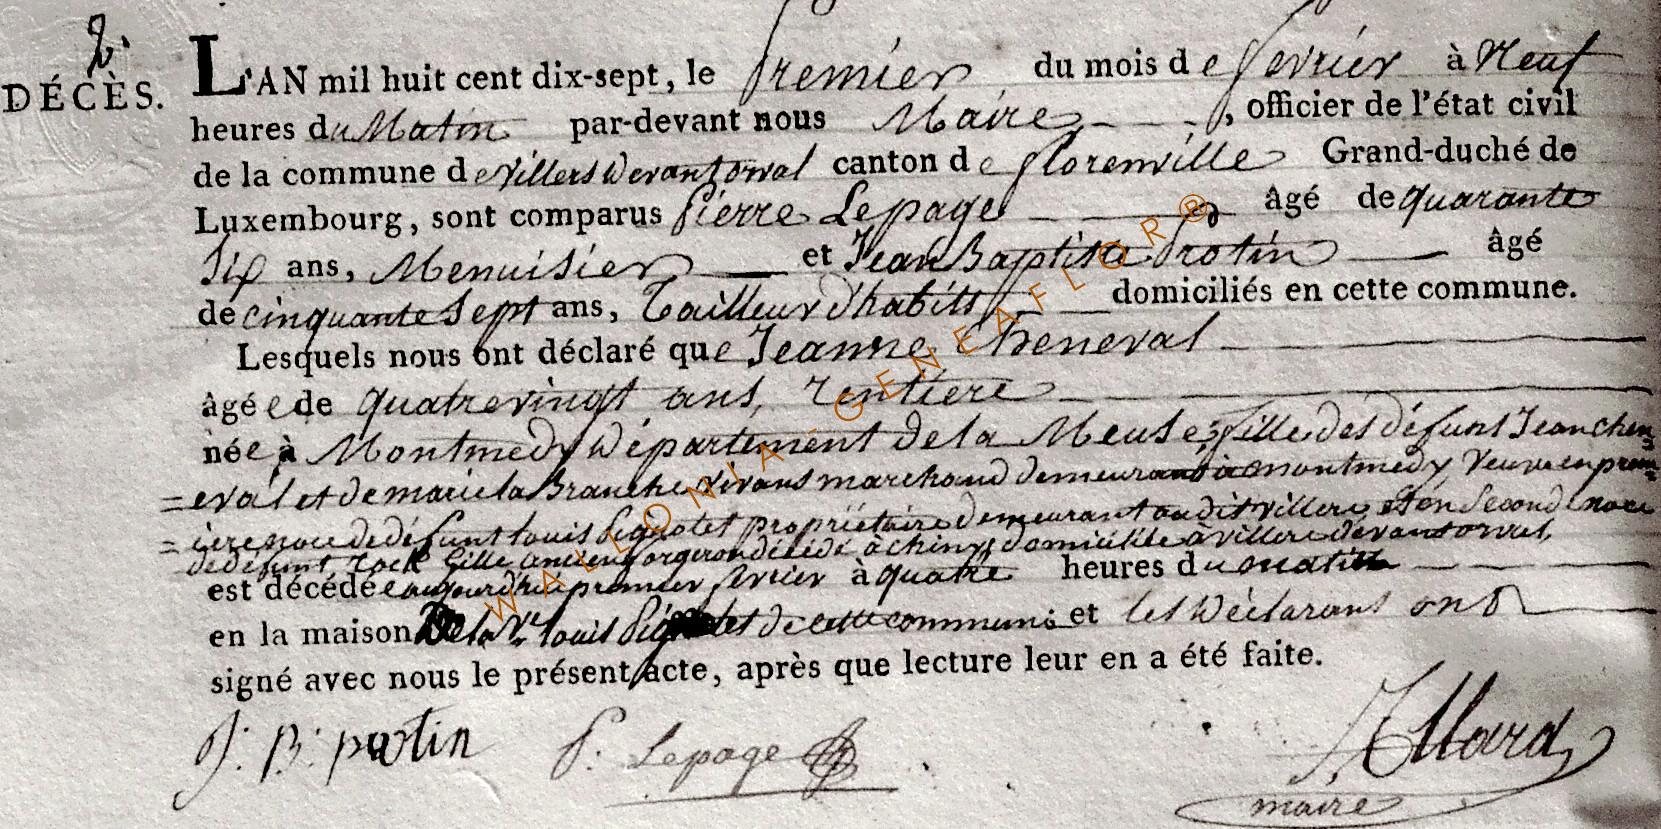 2.
DÉCÈS.
L'AN mil huit cent dix-sept, le premier du mois de fevrier à Neuf
heures du Matin par-devant nous Maire, officier de l'état civil
de la commune de villers devant orval canton de florenville Grand-duché de
Luxembourg, sont comparus Pierre Lepage âgé de quarante
Six ans, Menuisier et Jean Baptiste Protin âgé
de cinquante Sept ans, Tailleur d'habits domiciliés en cette commune.
Lesquels nous ont déclaré que Jeanne Cheneval
âgée de quatrevingt ans, rentiere
née à Montmedy Département de la Meuse, fille des défunt Jean Chen
= eval et de marie la Branche vivans marchand demeurant a montmedy Veuve en prem=
= iere noce de défunt louis propriétaire demeurant audit villers et en Second noce
de défunt rock Gille ancien forgeron décédé à chiny, domiciliée à villers devant orval,
est décédée aujourdhui premier fevrier à quatre heures du matin
en la maison De la Ve louis de cette commune et les Déclarans ont
signé avec nous le présent acte, après que lecture leur en a été faite.
J: B: protin P: Lepage
maire
WALLONIA GENEAFLOR®